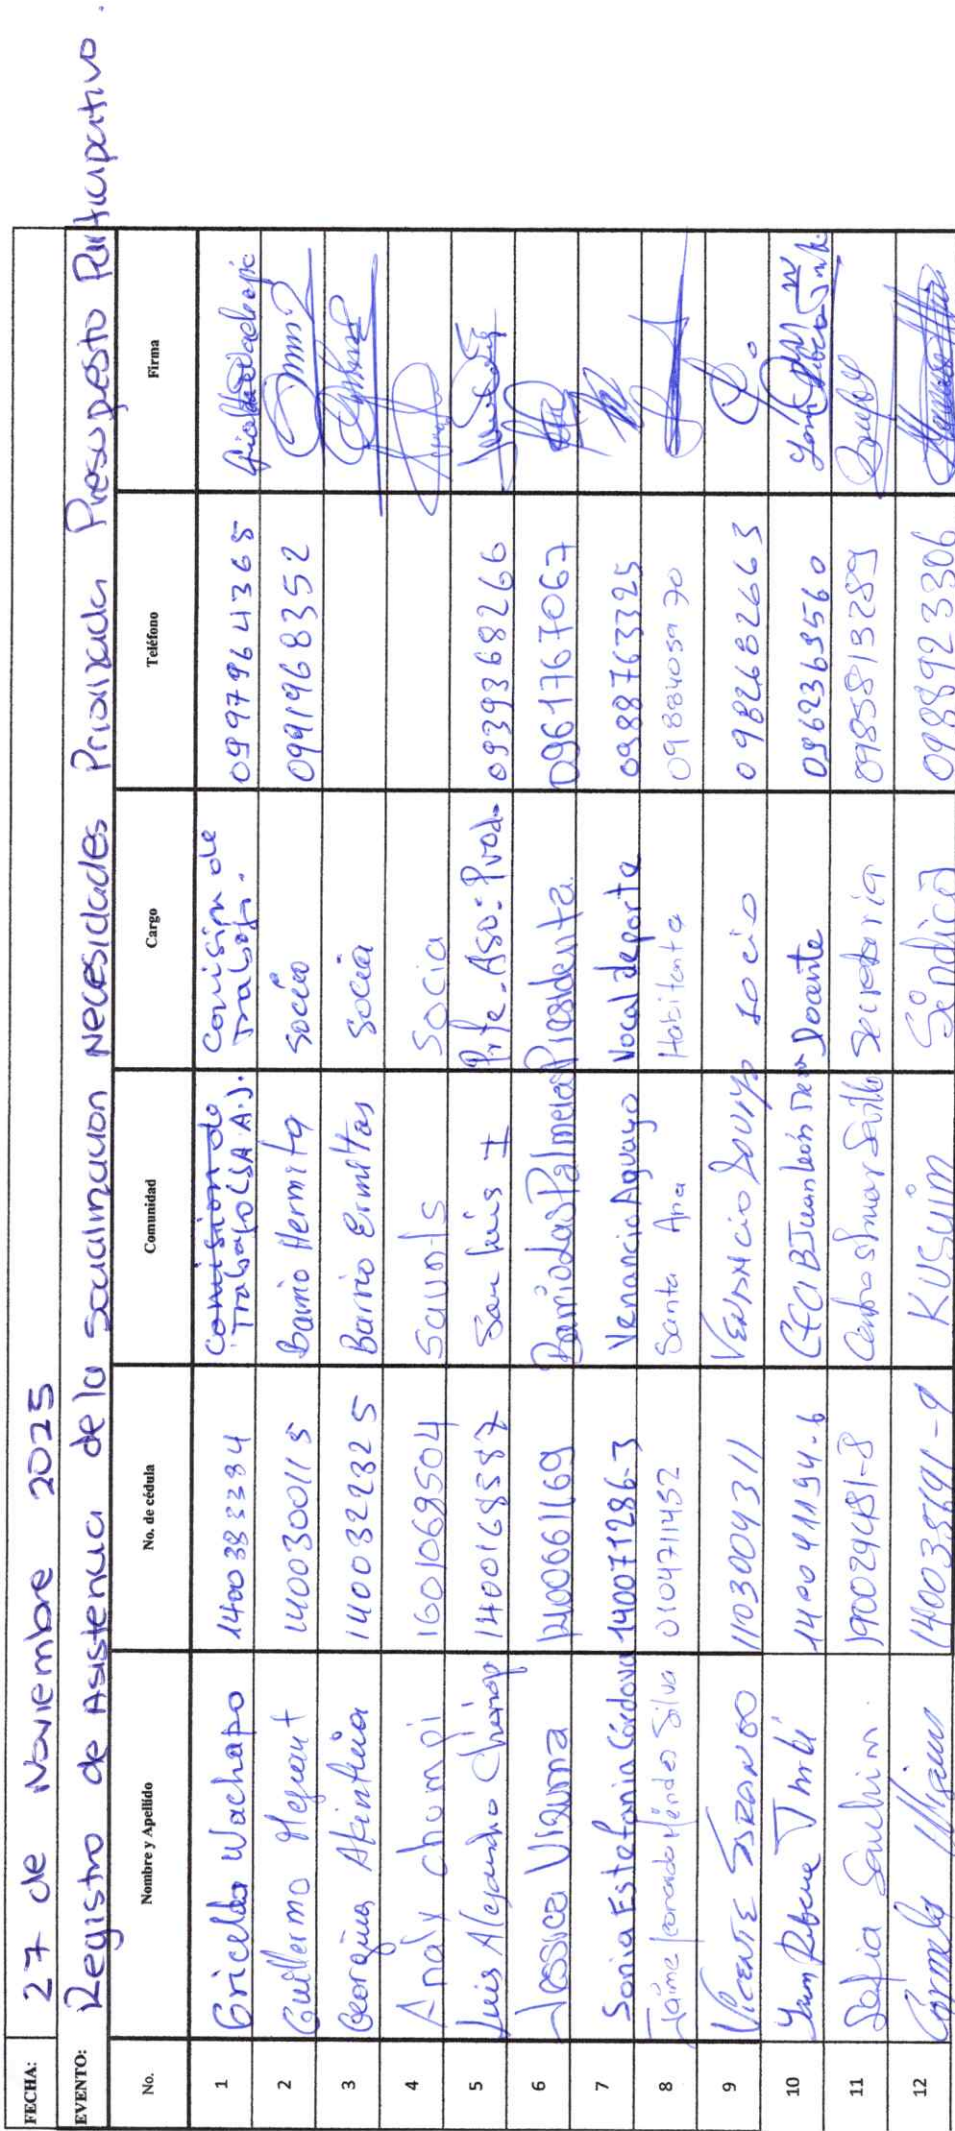 FECHA: 27 de Noviembre 2025
EVENTO: Registro de Asistencia de la Socialización Necesidades Priorizada Presupesto Participativo.
No. Nombre y Apellido No. de cédula Comunidad Cargo Teléfono Firma
1 Gricelda Wachapo 1400383384 Comision de Trabajo (SA A.J. Comisión de Trabajo. 0997964365
2 Guillermo 1400300115 Barrio Hermita Socio 0991968352
3 Georgina 1400322325 Barrio Ermitas Socia
4 Analy chumpi 1601069504 Sawants Socia
5 Luis Alejandro Chiriap 1400168587 San Luis I Prte. Aso. Prod. 0939368266
6 Jessica Vizuma 1400661169 Barrio Las Palmeras Presidenta 0961767067
7 Sonia Estefania Córdova 140071286-3 Venancio Aguayo Vocal deporte 0988763325
8 Jaime Leonardo Méndez Silva 0104711452 Santa Ana Habitante 0988405970
9 Vicente 1103004311 Socio 0982682663
10 140041194-6 CECIB Juan León Mera Docente 0962369560
11 Sofia 190029481-8 Centro Shuar Sevilla Secretaria 0985813289
12 Carmela 140038691-9 Kusuim Síndica 0988923306